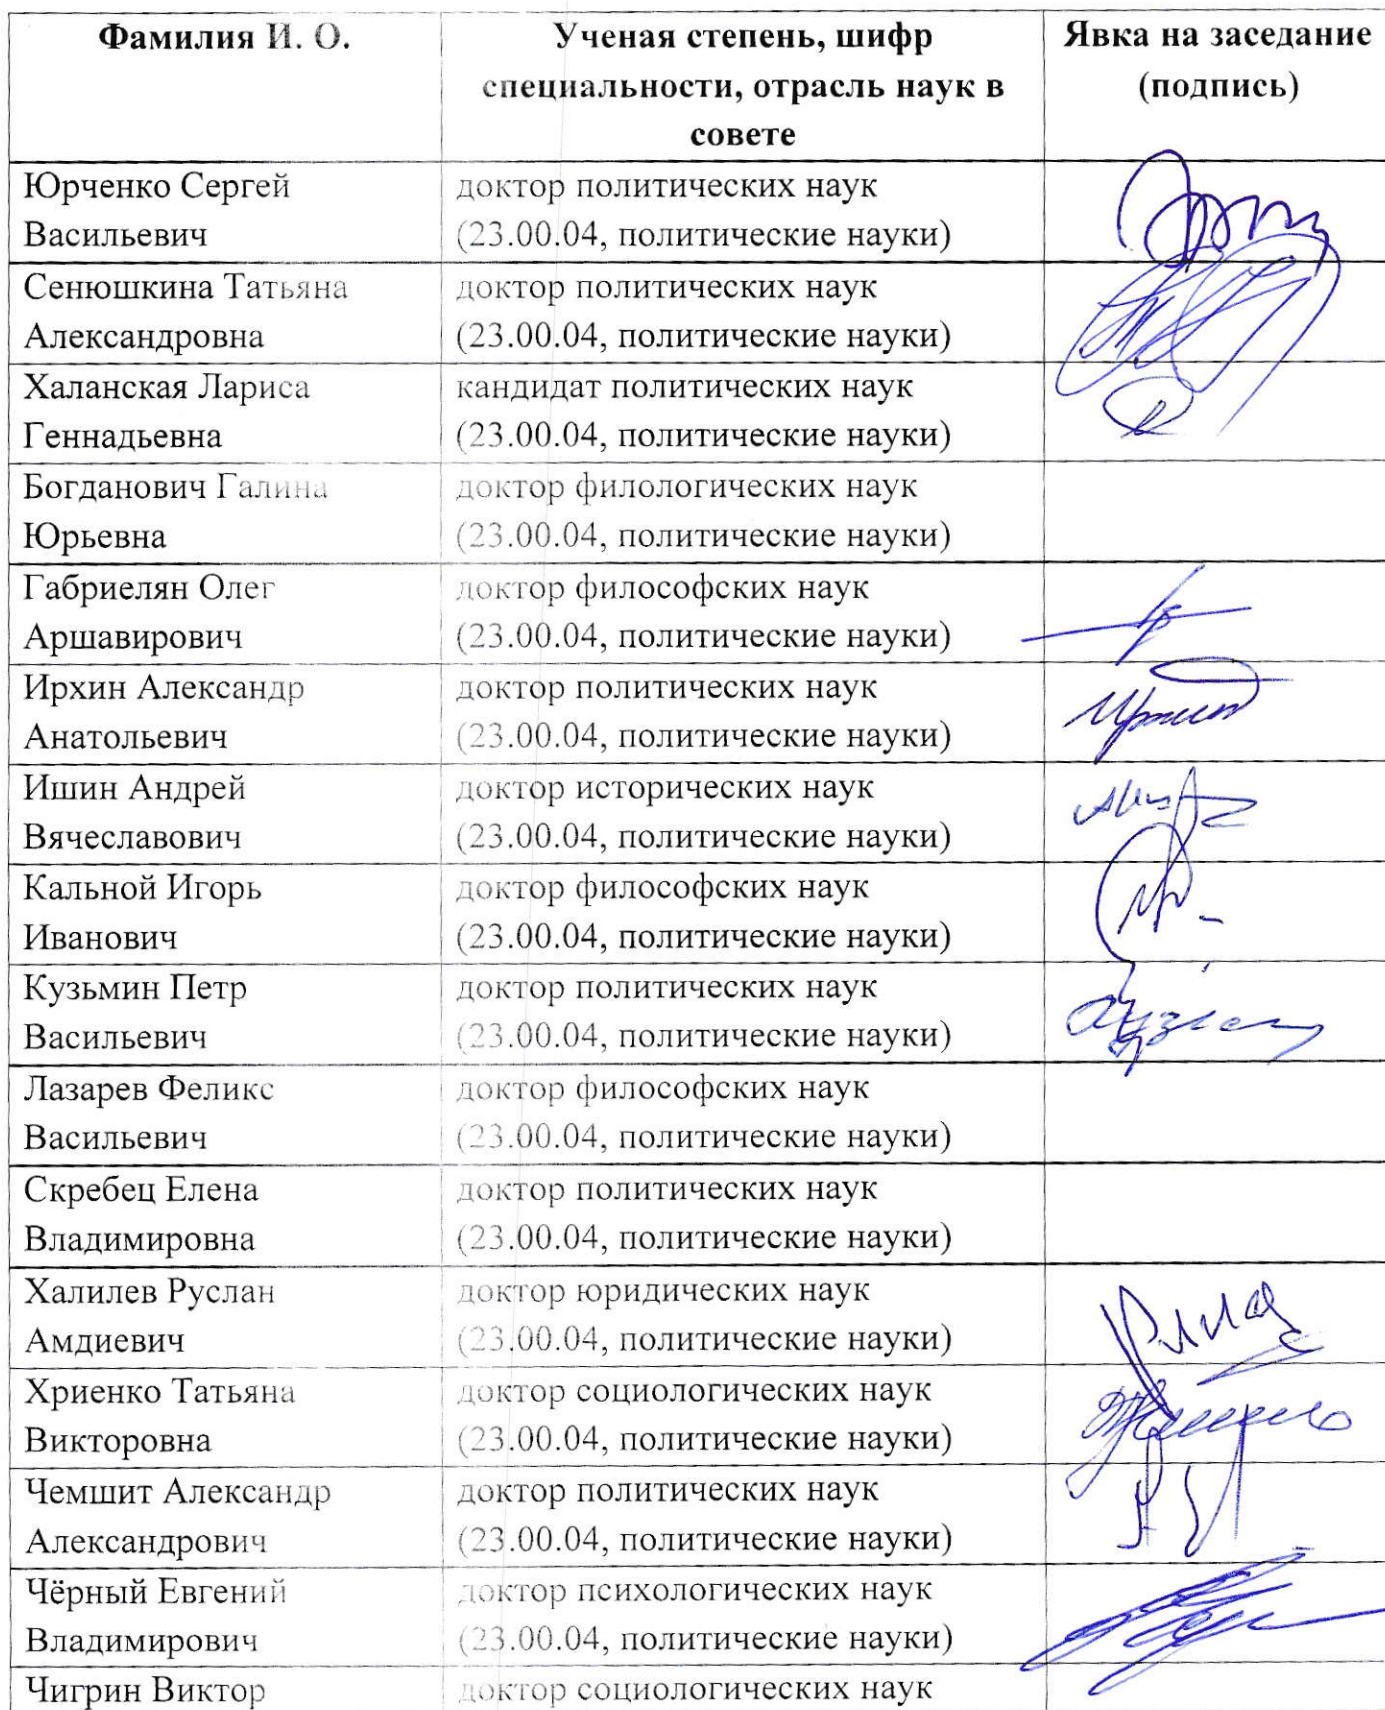 Фамилия И. О.
Ученая степень, шифр
специальности, отрасль наук в
совете
Явка на заседание
(подпись)
Юрченко Сергей
Васильевич
доктор политических наук
(23.00.04, политические науки)
Сенюшкина Татьяна
Александровна
доктор политических наук
(23.00.04, политические науки)
Халанская Лариса
Геннадьевна
кандидат политических наук
(23.00.04, политические науки)
Богданович Галина
Юрьевна
доктор филологических наук
(23.00.04, политические науки)
Габриелян Олег
Аршавирович
доктор философских наук
(23.00.04, политические науки)
Ирхин Александр
Анатольевич
доктор политических наук
(23.00.04, политические науки)
Ишин Андрей
Вячеславович
доктор исторических наук
(23.00.04, политические науки)
Кальной Игорь
Иванович
доктор философских наук
(23.00.04, политические науки)
Кузьмин Петр
Васильевич
доктор политических наук
(23.00.04, политические науки)
Лазарев Феликс
Васильевич
доктор философских наук
(23.00.04, политические науки)
Скребец Елена
Владимировна
доктор политических наук
(23.00.04, политические науки)
Халилев Руслан
Амдиевич
доктор юридических наук
(23.00.04, политические науки)
Хриенко Татьяна
Викторовна
доктор социологических наук
(23.00.04, политические науки)
Чемшит Александр
Александрович
доктор политических наук
(23.00.04, политические науки)
Чёрный Евгений
Владимирович
доктор психологических наук
(23.00.04, политические науки)
Чигрин Виктор
доктор социологических наук